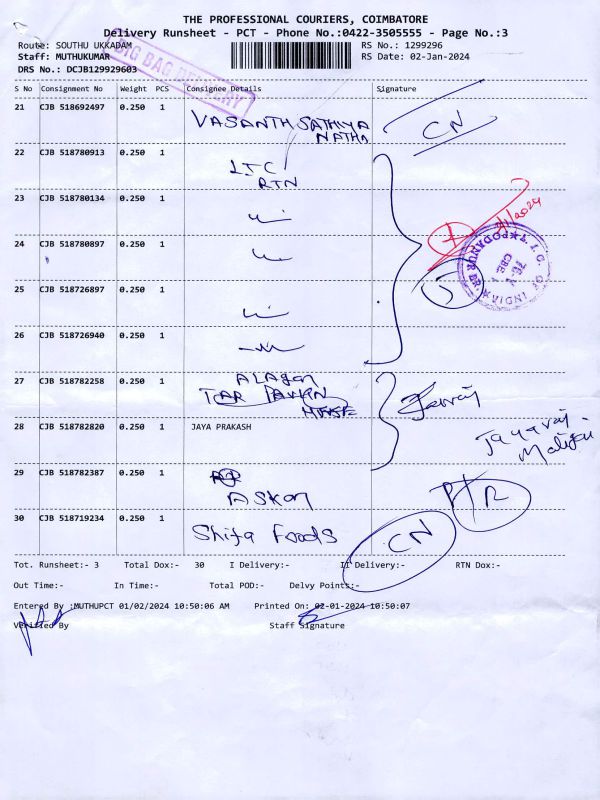 THE PROFESSIONAL COURIERS, COIMBATORE
Delivery Runsheet - PCT - Phone No.:0422-3505555 - Page No.:3
Route: SOUTHU UKKADAM RS No.: 1299296
Staff: MUTHUKUMAR RS Date: 02-Jan-2024
DRS No.: DCJB129929603
BIG BAG DELIVERY
S No Consignment No Weight PCS Consignee Details Signature
21 CJB 518692497 0.250 1 VASANTH SATHIYA CN
NATHA
22 CJB 518780913 0.250 1 LTC
RTN
23 CJB 518780134 0.250 1
24 CJB 518780897 0.250 1
L.I.C. OF INDIA
PODANUR
CBE
25 CJB 518726897 0.250 1
26 CJB 518726940 0.250 1
27 CJB 518782258 0.250 1 ALAGAN
28 CJB 518782820 0.250 1 JAYA PRAKASH Jayaraj
29 CJB 518782387 0.250 1 ASKON
30 CJB 518719234 0.250 1 Shifa Foods CN
Tot. Runsheet:- 3 Total Dox:- 30 I Delivery:- II Delivery:- RTN Dox:-
Out Time:- In Time:- Total POD:- Delvy Points:-
Entered By :MUTHUPCT 01/02/2024 10:50:06 AM Printed On: 02-01-2024 10:50:07
Verified By Staff Signature